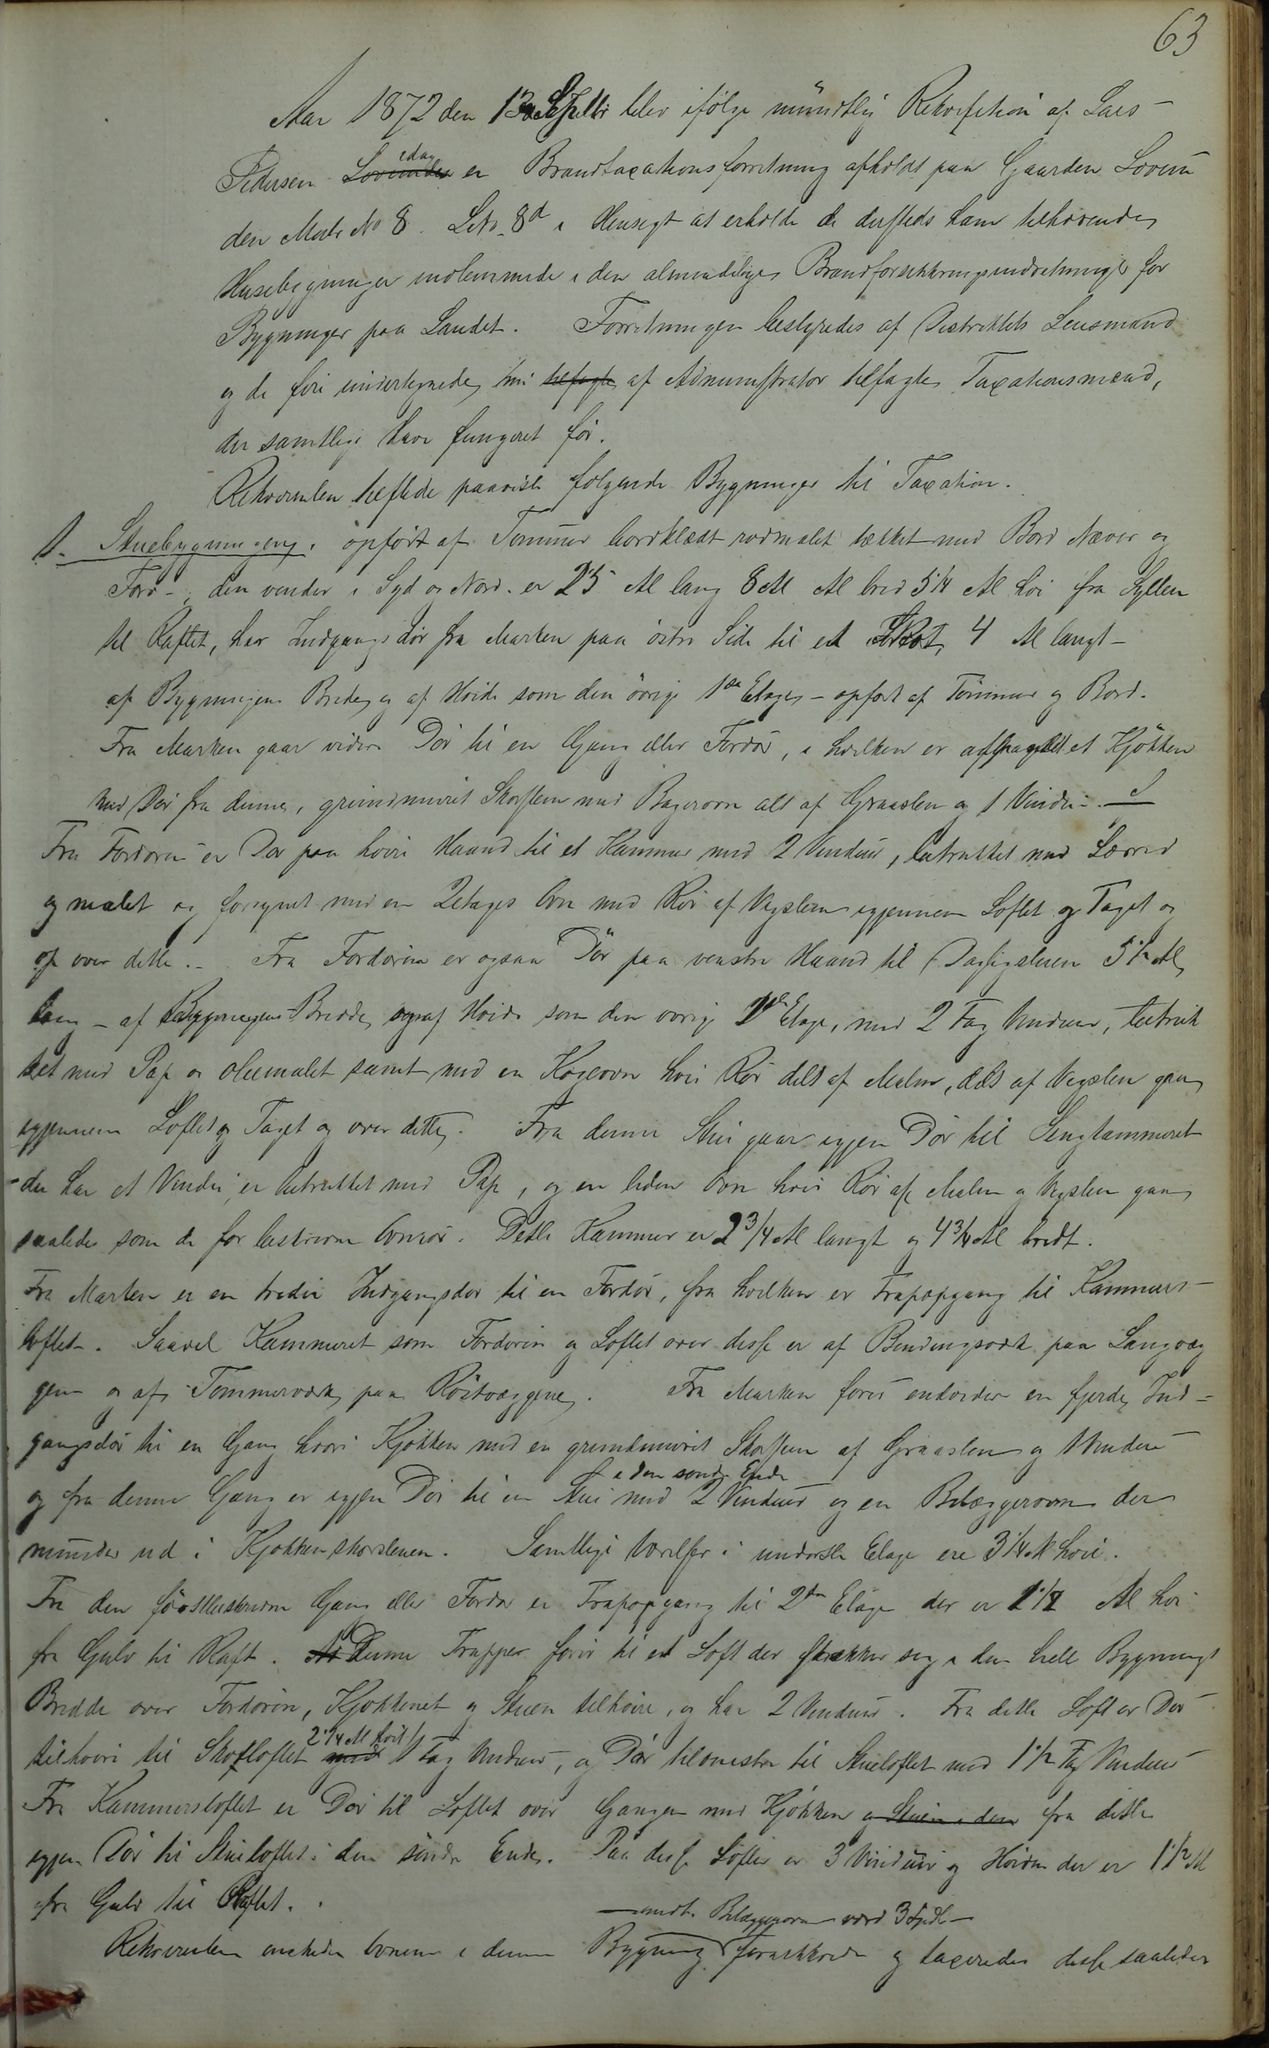 63
Aar 1872 den 13 Septbr blev ifølge mündtlig Rekvisition af Lars
Pedersen idag en Brandtaxationsforretning afholdt paa Gaarden Lovün
den Matr No 8. LNo. 8d i Hensigt at erholde de dersteds ham tilhørende
Husebygninger indlemmede i den almindelige Brandforsikkringsindretning for
Bygninger paa Landet. Forretningen bestyredes af Distriktets Lensmand
og de fire undertegnede, af Administrator tilsagte Taxationsmænd,
der samtlige have fungeret før.
Rekvirenten tilstede paaviste følgende Bygninger til Taxation.
1. Stuebygningen, opført af Tømmer bordklædt rødmalet tækket med Bord Næver og
Torv -, den vender i Syd og Nord. er 25 Al lang 8 Al bred 5 1/4 Al høi fra Syllen
til Raftet, har Indgangsdør fra Marken paa østre Side til et Skot, 4 Al langt -
af Bygningens Bredde og af Høide som den øvrige 1ste Etage - opført af Tømmer og Bord.
Fra Marken gaar videre Dør til en Gang eller Fordør, i hvilken er afpanelet et Kjøkken
med Dør fra denne, grundmuret Skorsten med Bagerovn alt af Graasten og 1 Vindu -
Fra Fordøren er Dør paa høire Haand til et Kammer med 2 Vinduer, betrukket med Lærred
og malet og forsynet med en 2etages Ovn med Rør af Vegsten igjennem Loftet og Taget og
op over dette. - Fra Fordøren er ogsaa Dør paa venstre Haand til Dagligstuen 5 1/2 Al
lang - af Bygningens Bredde, og af Høide som den øvrige 1ste Etage, med 2 Fag Vinduer, betruk
ket med Pap og oliemalet samt med en Kogeovn hvis Rør dels af Malm, dels af Vegsten gaar
igjennem Loftet og Taget og over dette. Fra denne Stue gaar igjen Dør til Sengkammeret
der har et Vindu, er betrukket med Pap, og en liden Ovn hvis Rør af Malm og Vegsten gaar
saaledes som de før beskrevne Ovnsrør. Dette Kammer er 2 3/4 Al langt og 4 3/4 Al bredt.
Fra Marken er en tredie Indgangsdør til en Fordør, fra hvilken er Trapopgang til Kammers-
loftet. Saavel Kammeret som Fordøren og Loftet over disse er af Bindingsværk paa Langvæg
gene og af Tømmerværk paa Røstvæggene. Fra Marken fører endvidere en fjerde Ind=
gangsdør til en Gang hvori Kjøkken med en grundmuret Skorsten af Graasten og 1 Vindue
og fra denne Gang er igjen Dør til en Stue i den søndre Ende med 2 Vinduer og en Bilæggerovn der
münder ud i Kjøkkenskorstenen. Samtlige Værelser i underste Etage ere 3 1/4 Al høie.
Fra den førstbeskrevne Gang eller Fordør er Trapopgang til 2den Etage der er 1 1/2 Al høi
fra Gulv til Raft. Denne Trappe fører til et Loft der strækker sig i den hele Bygnings
Bredde over Fordøren, Kjøkkenet og Stuen tilhøire, og har 2 Vinduer. Fra dette Loft er Dør
tilhøire til Skotloftet 2 1/4 Al høit 1 Fag Vinduer, og Dør tilvenstre til Stueloftet med 1 1/2 Fag Vinduer
Fra Kammersloftet er Dør til Loftet over Gangen med Kjøkken fra dette
igjen Dør til Stueloftet i den søndre Ende. Paa disse Lofter er 3 Vinduer og Høiden der er 1 1/2 Al
fra Gulv til Raftet.
Rekvirenten ønskede Ovnene i denne Bygning - undt. Bilæggerovn værd 3 Spdl - forsikkrede og taxeredes disse saaledes